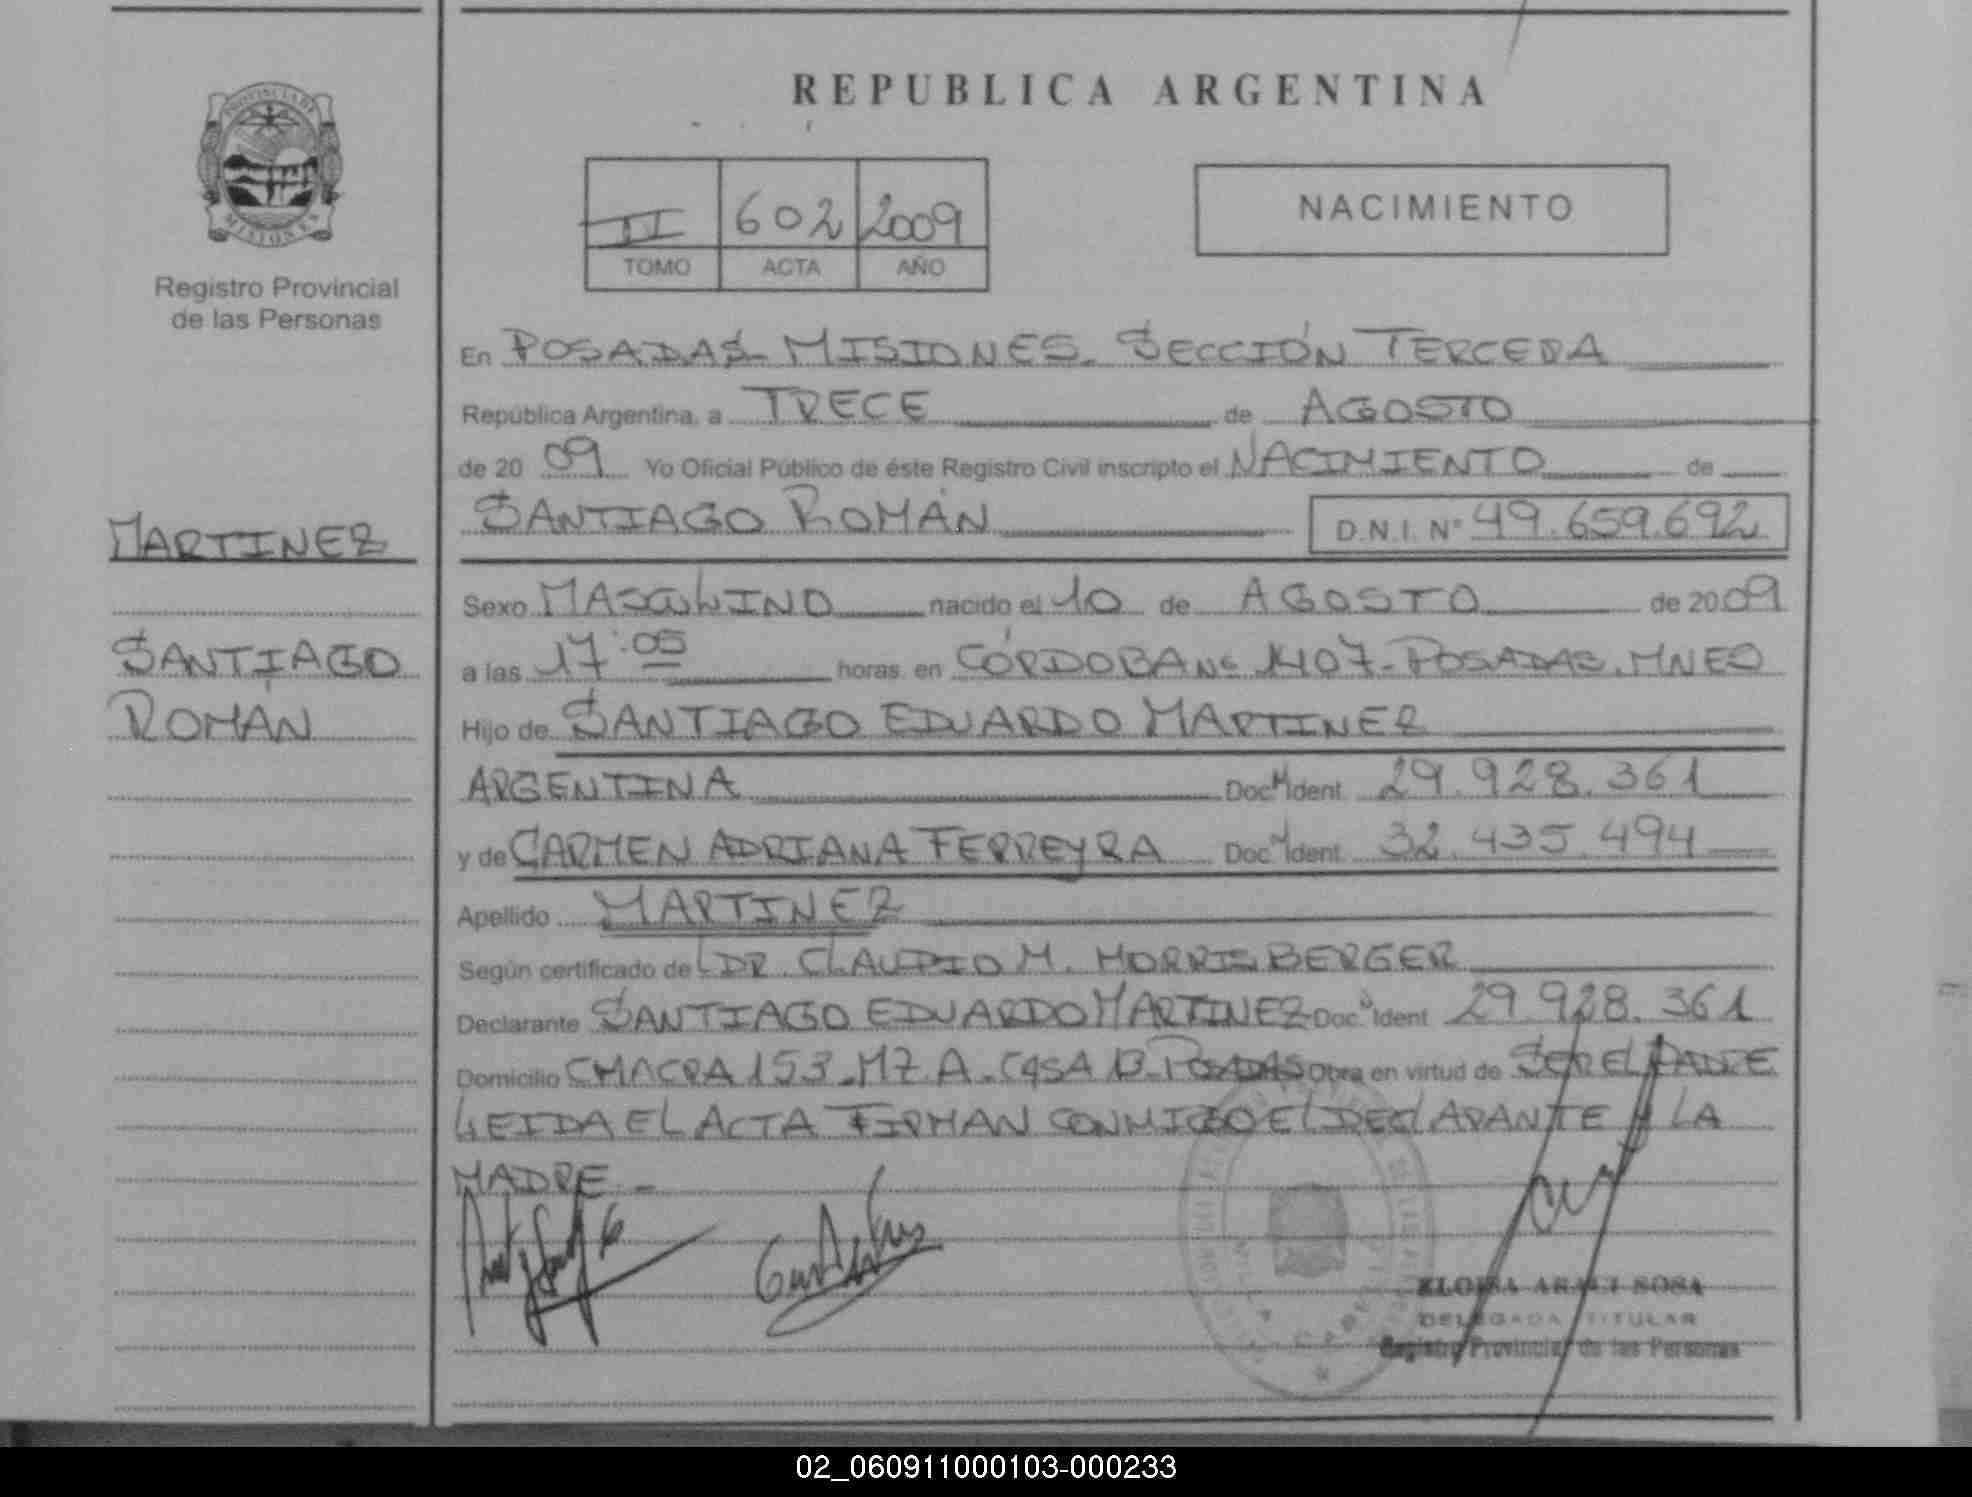 PROVINCIA DE
MISIONES
Registro Provincial
de las Personas
MARTINEZ
SANTIAGO
ROMÁN
REPUBLICA ARGENTINA
II 602 2009
TOMO ACTA AÑO
NACIMIENTO
En POSADAS - MISIONES - SECCIÓN TERCERA
República Argentina, a TRECE de AGOSTO
de 20 09 Yo Oficial Público de éste Registro Civil inscripto el NACIMIENTO de
SANTIAGO ROMÁN D.N.I. Nº 49.659.692
Sexo MASCULINO nacido el 10 de AGOSTO de 20 09
a las 17:05 horas. en CÓRDOBA Nº 1407 - POSADAS. MNES
Hijo de SANTIAGO EDUARDO MARTINEZ
ARGENTINA Doc. Ident. 29.928.361
y de CARMEN ADRIANA FERREYRA Doc. Ident. 32.435.494
Apellido MARTINEZ
Según certificado de DR. CLAUDIO M. MORRISBERGER
Declarante SANTIAGO EDUARDO MARTINEZ Doc. Ident 29.928.361
Domicilio CHACRA 153 - MZ A - CASA 13 - POSADAS Obra en virtud de SER EL PADRE
LEIDA EL ACTA FIRMAN CONMIGO EL DECLARANTE Y LA
MADRE -
ELOISA ARACI SOSA
DELEGADA TITULAR
Registro Provincial de las Personas
02_060911000103-000233